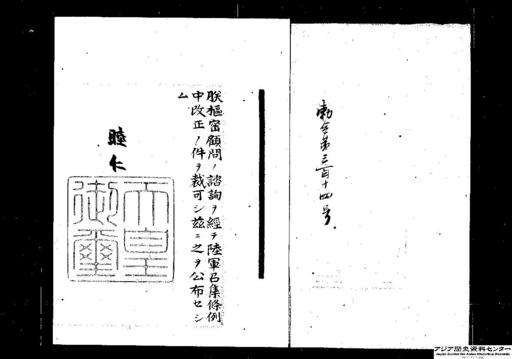 勅令第三百十四号
朕樞密顧問ノ諮詢ヲ經テ陸軍召集條例
中改正ノ件ヲ裁可シ茲ニ之ヲ公布セシ
ム
睦仁
天皇
御璽
アジア歴史資料センター
Japan Center for Asian Historical Records